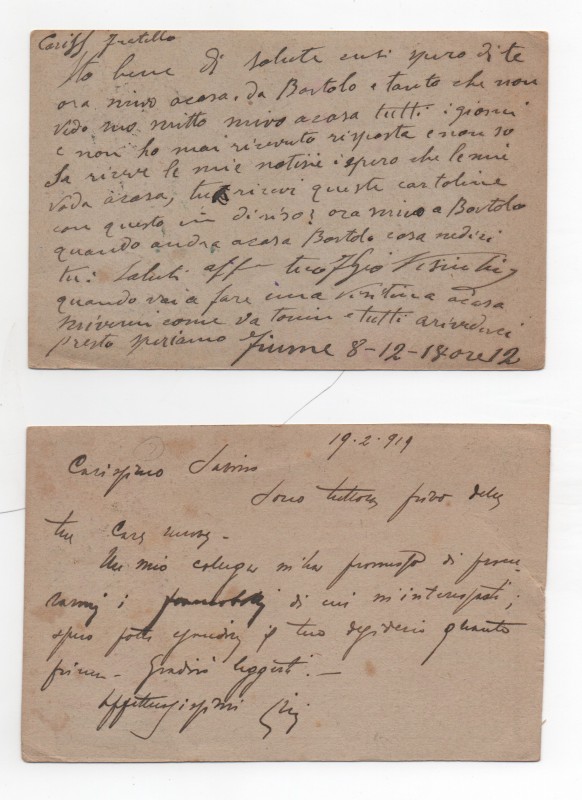 Cariss Fratello
Sto bene di salute cusi spero di te
ora scrivo acasa, da Bortolo e tanto che non
vedo ma scrivo acasa tutti i giorni
e non ho mai ricevuto risposta e non so
Sa riceve le mie notisie i spero che le mie
vada acasa, tu ricevi queste cartoline
con questo in diriso? ora scrivo a Bortolo
quando andra acasa Bortolo cosa nedici
tu: Saluti aff tuo
quando vai a fare una visitina acasa
scrivemi come va tonin e tutti a rivederci
presto speriamo Fiume 8-12-18 ore 12
19-2-919
Carissimo
Sono tuttora privo delle
tue care nuove -
Un mio collega m'ha promesso di procu-
rarmi i francobolli di cui m'interessasti;
spero poter esaudire il tuo desiderio quanto
prima - Gradisci
Affettuosissimi